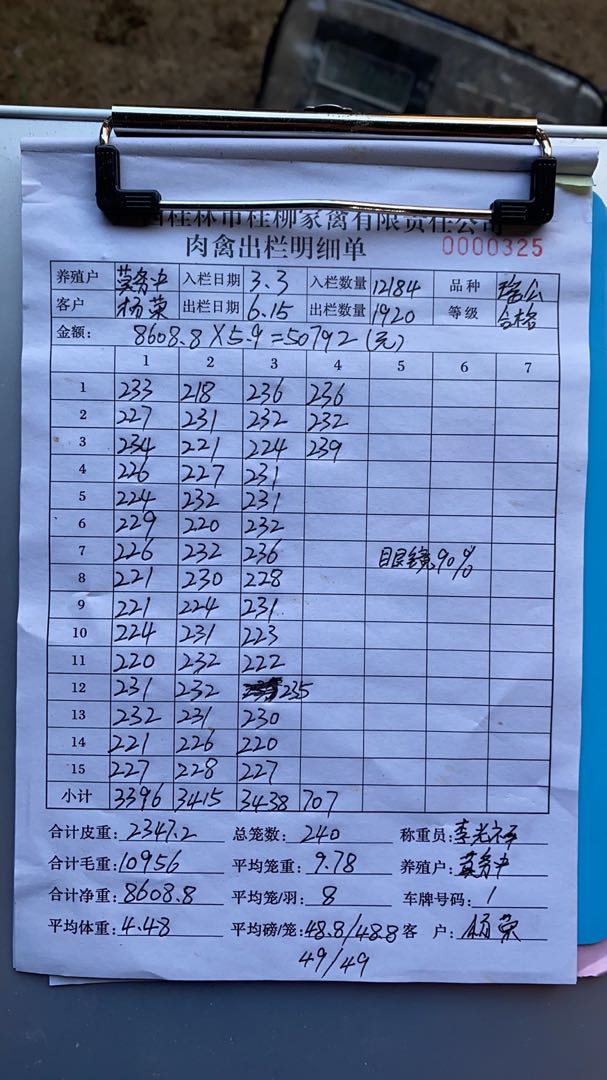 桂林市桂柳家禽有限责任公司
肉禽出栏明细单 0000325
养殖户 莫务中 入栏日期 3.3 入栏数量 12184 品种 瑶公
客户 杨荣 出栏日期 6.15 出栏数量 1920 等级 合格
金额: 8608.8×5.9=50792(元)
1 2 3 4 5 6 7
1 233 218 236 236
2 227 231 232 232
3 234 221 224 239
4 226 227 231
5 224 232 231
6 229 220 232
7 226 232 236 目艮镜90%
8 221 230 228
9 221 224 231
10 224 231 223
11 220 232 222
12 231 232 235
13 232 231 230
14 221 226 220
15 227 228 227
小计 3396 3415 3438 707
合计皮重: 2347.2 总笼数: 240 称重员: 李光
合计毛重: 10956 平均笼重: 9.78 养殖户: 莫务中
合计净重: 8608.8 平均笼/羽: 8 车牌号码: 1
平均体重: 4.48 平均磅/笼: 48.8/48.8 客 户: 杨荣
49/49